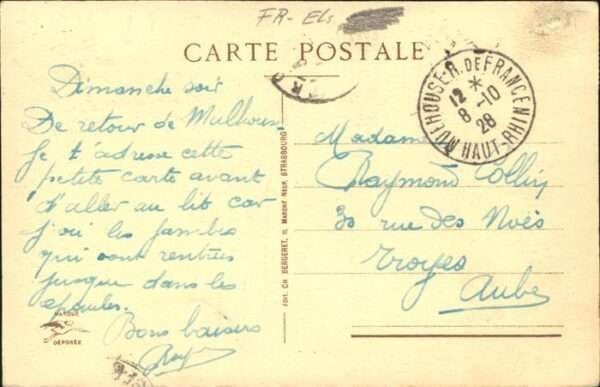 FR-Els
CARTE POSTALE
MULHOUSE-R. DE FRANCE
12 *
8-10
28
HAUT-RHIN
Dimanche soir
De retour de Mulhouse
Je t'adresse cette
petite carte avant
d'aller au lit car
j'ai les jambes
qui sont rentrées
jusque dans les
épaules.
Bons baisers
Madame
Raymond Collin
30 rue des Noës
Troyes
Aube
EDIT. CH BERGERET, 11, MARCHÉ NEUF, STRASBOURG
MARQUE
DÉPOSÉE